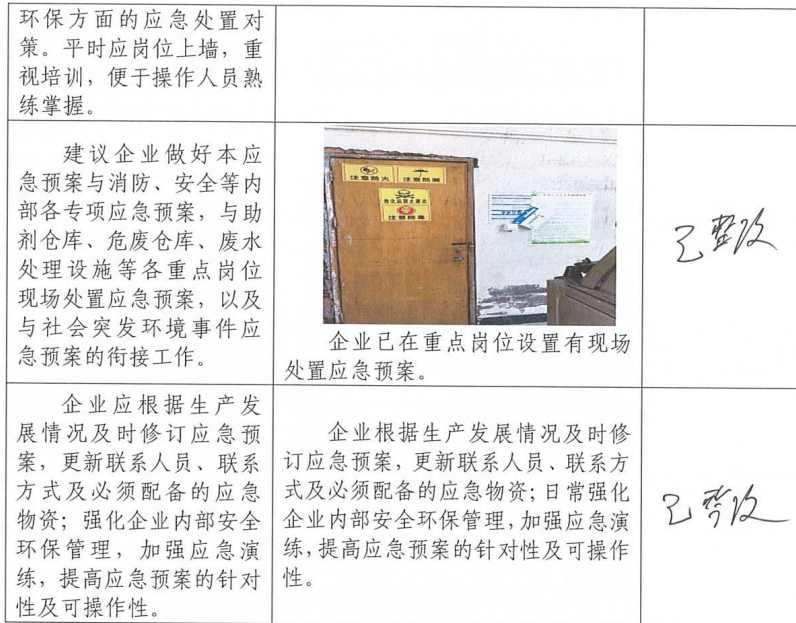 环保方面的应急处置对
策。平时应岗位上墙，重
视培训，便于操作人员熟
练掌握。
建议企业做好本应
急预案与消防、安全等内
部各专项应急预案，与助
剂仓库、危废仓库、废水
处理设施等各重点岗位
现场处置应急预案，以及
与社会突发环境事件应
急预案的衔接工作。
注意防火
注意防潮
注意防毒
企业已在重点岗位设置有现场
处置应急预案。
已整改
企业应根据生产发
展情况及时修订应急预
案，更新联系人员、联系
方式及必须配备的应急
物资；强化企业内部安全
环保管理，加强应急演
练，提高应急预案的针对
性及可操作性。
企业根据生产发展情况及时修
订应急预案，更新联系人员、联系方
式及必须配备的应急物资；日常强化
企业内部安全环保管理，加强应急演
练，提高应急预案的针对性及可操作
性。
已整改